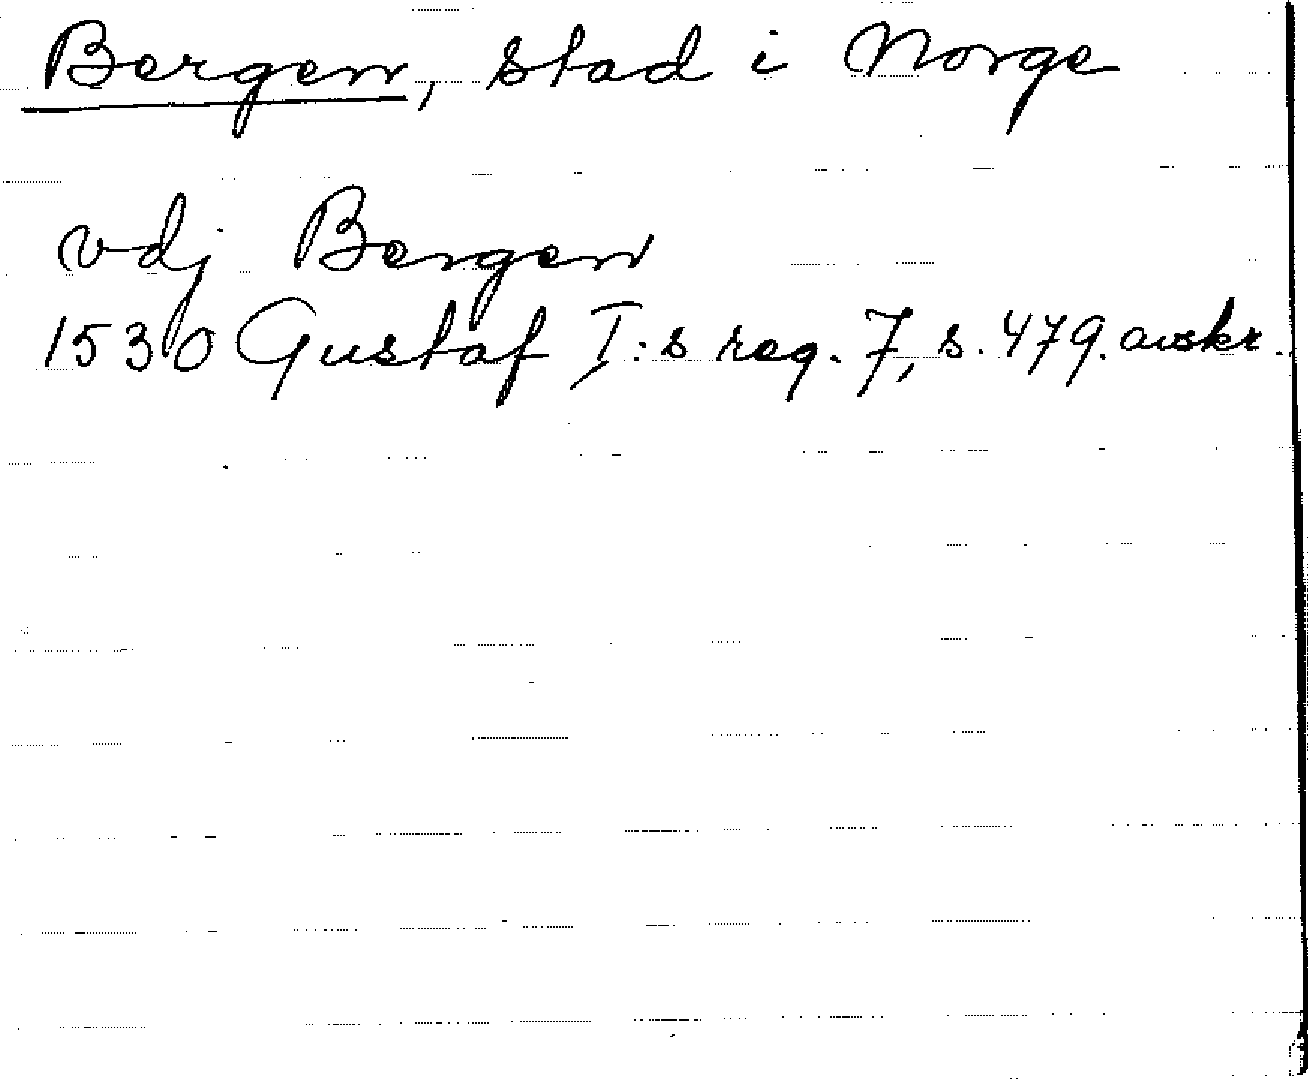 Bergen, stad i Norge
vdj Bergen
1530 Gustaf I:s reg. 7, s. 479. avskr.